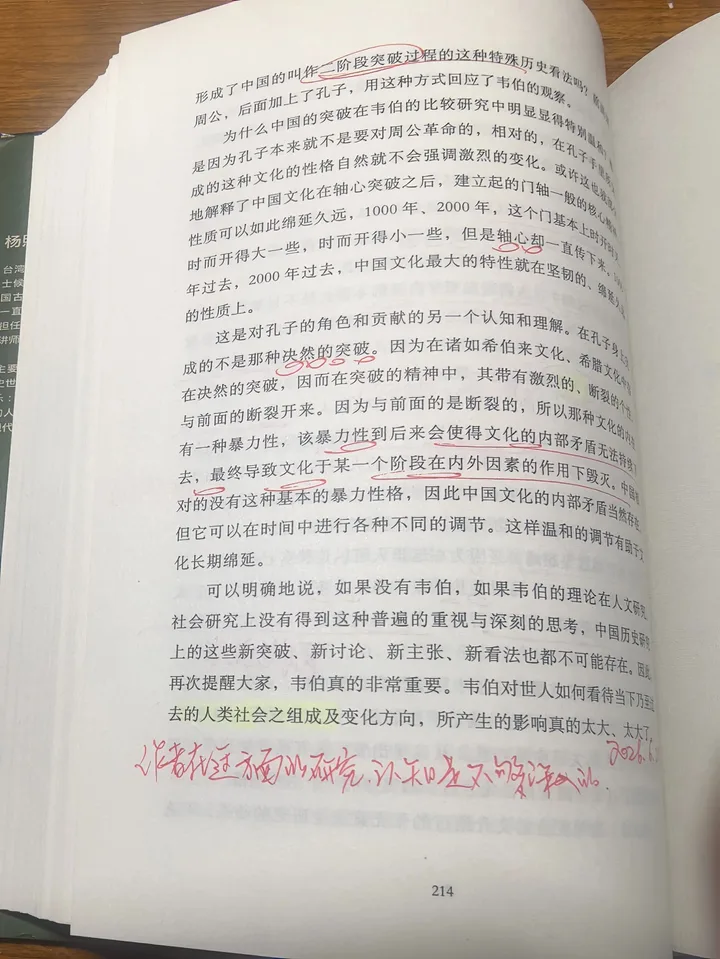 形成了中国的叫作二阶段突破过程的这种特殊历史看法吗？
周公，后面加上了孔子，用这种方式回应了韦伯的观察。
为什么中国的突破在韦伯的比较研究中明显显得特别温和？
是因为孔子本来就不是要对周公革命的，相对的，在孔子手
成的这种文化的性格自然就不会强调激烈的变化。或许这也
地解释了中国文化在轴心突破之后，建立起的门轴一般的核心精
性质可以如此绵延久远，1000 年、2000 年，这个门基本上时开时
时而开得大一些，时而开得小一些，但是轴心却一直传下来，
年过去，2000 年过去，中国文化最大的特性就在坚韧的、绵延
的性质上。
这是对孔子的角色和贡献的另一个认知和理解。在孔子身上
成的不是那种决然的突破。因为在诸如希伯来文化、希腊文化中
在决然的突破，因而在突破的精神中，其带有激烈的、断裂的个性
与前面的断裂开来。因为与前面的是断裂的，所以那种文化的内
有一种暴力性，该暴力性到后来会使得文化的内部矛盾无法持续
去，最终导致文化于某一个阶段在内外因素的作用下毁灭。中国
对的没有这种基本的暴力性格，因此中国文化的内部矛盾当然存在，
但它可以在时间中进行各种不同的调节。这样温和的调节有助于文
化长期绵延。
可以明确地说，如果没有韦伯，如果韦伯的理论在人文研究、
社会研究上没有得到这种普遍的重视与深刻的思考，中国历史研究
上的这些新突破、新讨论、新主张、新看法也都不可能存在。因此
再次提醒大家，韦伯真的非常重要。韦伯对世人如何看待当下乃至过
去的人类社会之组成及变化方向，所产生的影响真的太大、太大了。
2026.
作者在这方面的研究、认知是不够深入的.
214
杨
台湾
士候
国古
一直
担任
讲师
主要
史世
乐：
的人
现代